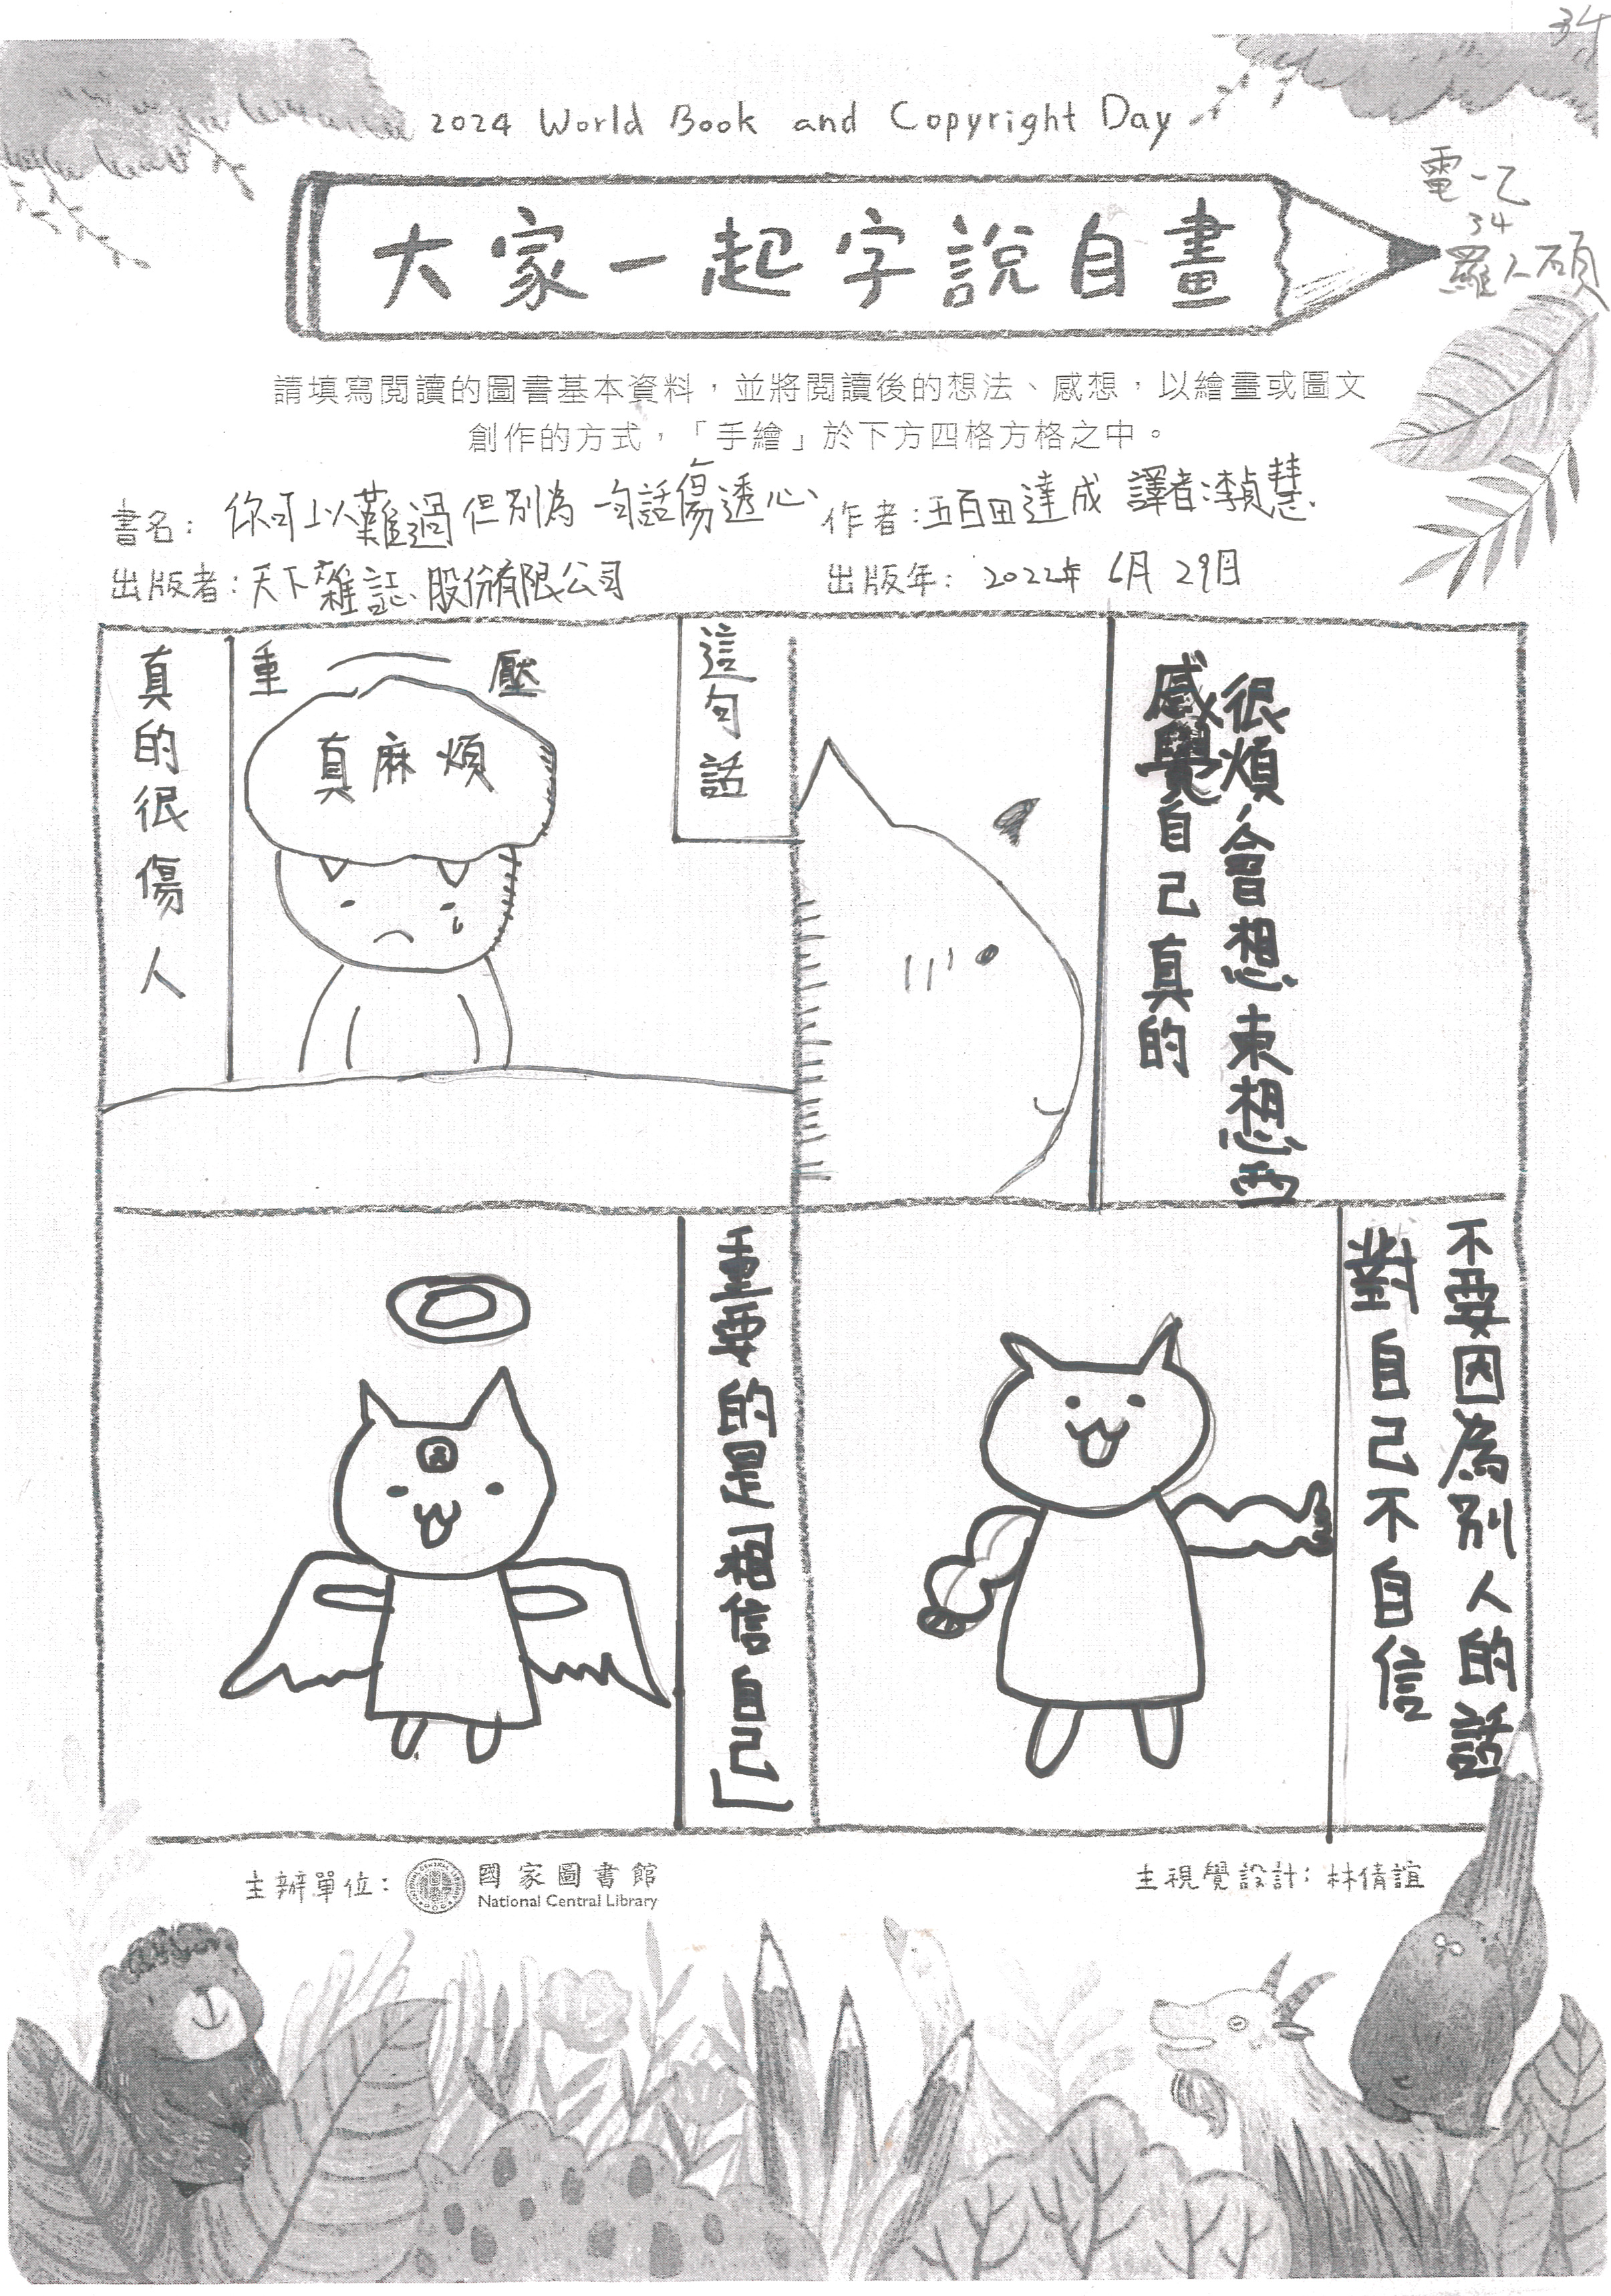 34
2024 World Book and Copyright Day
電一乙
34
羅人碩
大家一起字說自畫
請填寫閱讀的圖書基本資料，並將閱讀後的想法、感想，以繪畫或圖文
創作的方式，「手繪」於下方四格方格之中。
書名：你可以難過但別為一句話傷透心
作者：五百田達成 譯者：李貞慧
出版者：天下雜誌股份有限公司
出版年：2022年6月29日
這句話
重壓
真麻煩
真的很傷人
很煩，會想東想西
感覺自己真的
不要因為別人的話
對自己不自信
重要的是相信自己」
主辦單位：國家圖書館
National Central Library
主視覺設計：林倩誼